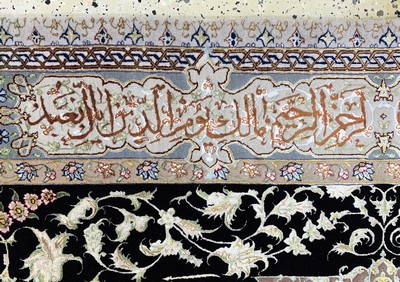 الرحمن الرحیم مالک یوم الدین ایاک نعبد